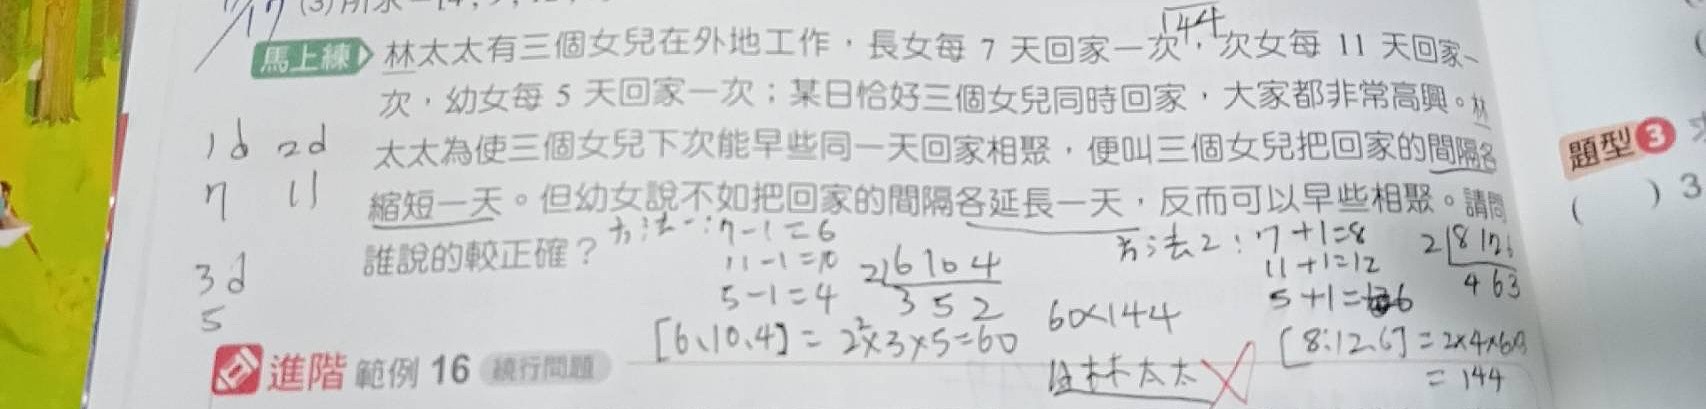 144
馬上練 林太太有三個女兒在外地工作,長女每 7 天回家一次,次女每 11 天回家一
次,幼女每 5 天回家一次;某日恰好三個女兒同時回家,大家都非常高興。林
太太為使三個女兒下次能早些同一天回家相聚,便叫三個女兒把回家的間隔各
縮短一天。但幼女說不如把回家的間隔各延長一天,反而可以早些相聚。請問
誰說的較正確?
1d 2d
7 11
3d
5
方法一:7-1=6
11-1=10
5-1=4
2|6 10 4
3 5 2
[6、10、4]=2²×3×5=60
60<144
林太太
方法2:7+1=8
11+1=12
5+1=6
2|8 12 6
4 6 3
[8、12、6]=2×4×6×3
=144
進階 範例 16 繞行問題
題型 3
( ) 3